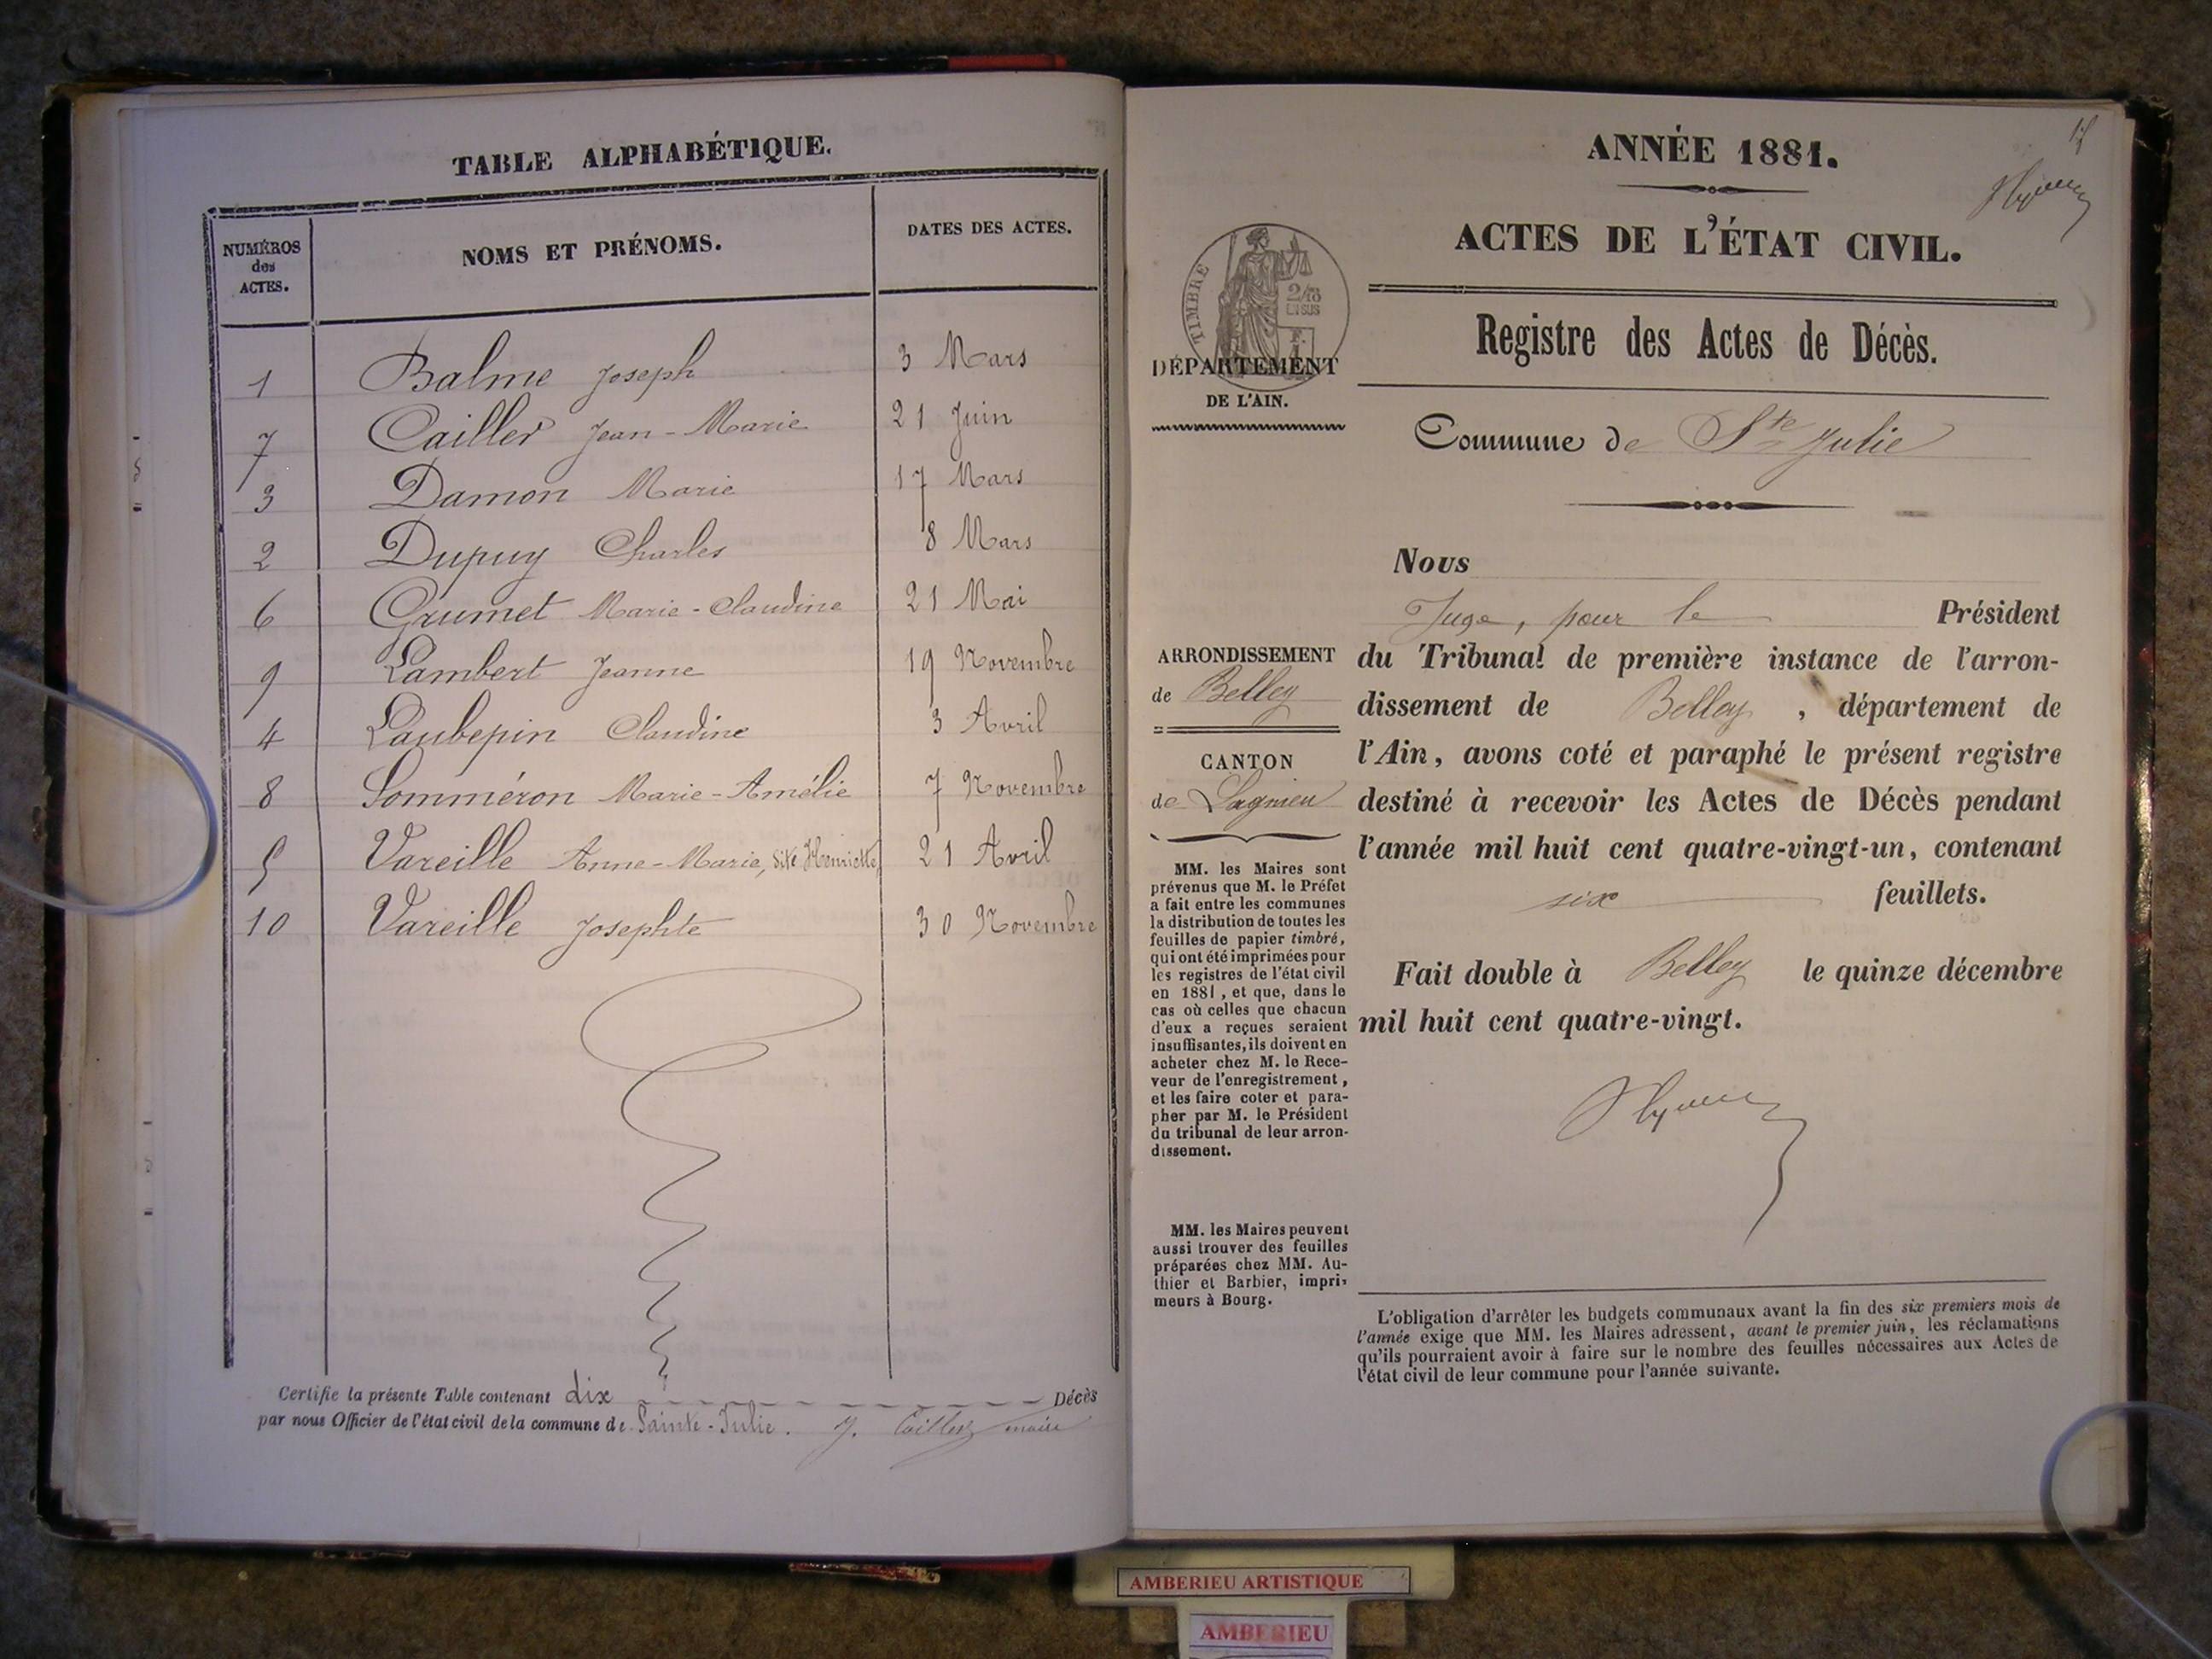 TABLE ALPHABÉTIQUE.
NUMÉROS
des
ACTES.
NOMS ET PRÉNOMS.
DATES DES ACTES.
1 Balme Joseph 3 Mars
7 Cailler Jean-Marie 21 Juin
3 Damon Marie 17 Mars
2 Dupuy Charles 8 Mars
6 Grumet Marie-Claudine 21 Mai
9 Lambert Jeanne 19 Novembre
4 Laubepin Claudine 3 Avril
8 Somméron Marie-Amélie 7 Novembre
5 Vareille Anne-Marie, dite Henriette 21 Avril
10 Vareille Josephte 30 Novembre
Certifie la présente Table contenant dix Décès
par nous Officier de l'état civil de la commune de Sainte-Julie. J. Cailler maire
ANNÉE 1881.
ACTES DE L'ÉTAT CIVIL.
Registre des Actes de Décès.
TIMBRE
2/10
EN SUS
DÉPARTEMENT
DE L'AIN.
Commune de Ste Julie
Nous
Juge, pour le Président
du Tribunal de première instance de l'arron-
dissement de Belley, département de
l'Ain, avons coté et paraphé le présent registre
destiné à recevoir les Actes de Décès pendant
l'année mil huit cent quatre-vingt-un, contenant
six feuillets.
Fait double à Belley le quinze décembre
mil huit cent quatre-vingt.
ARRONDISSEMENT
de Belley
CANTON
de Lagnieu
MM. les Maires sont
prévenus que M. le Préfet
a fait entre les communes
la distribution de toutes les
feuilles de papier timbré,
qui ont été imprimées pour
les registres de l'état civil
en 1881, et que, dans le
cas où celles que chacun
d'eux a reçues seraient
insuffisantes, ils doivent en
acheter chez M. le Rece-
veur de l'enregistrement,
et les faire coter et para-
pher par M. le Président
du tribunal de leur arron-
dissement.
MM. les Maires peuvent
aussi trouver des feuilles
préparées chez MM. Au-
thier et Barbier, impri-
meurs à Bourg.
L'obligation d'arrêter les budgets communaux avant la fin des six premiers mois de
l'année exige que MM. les Maires adressent, avant le premier juin, les réclamations
qu'ils pourraient avoir à faire sur le nombre des feuilles nécessaires aux Actes de
l'état civil de leur commune pour l'année suivante.
AMBERIEU ARTISTIQUE
AMBERIEU